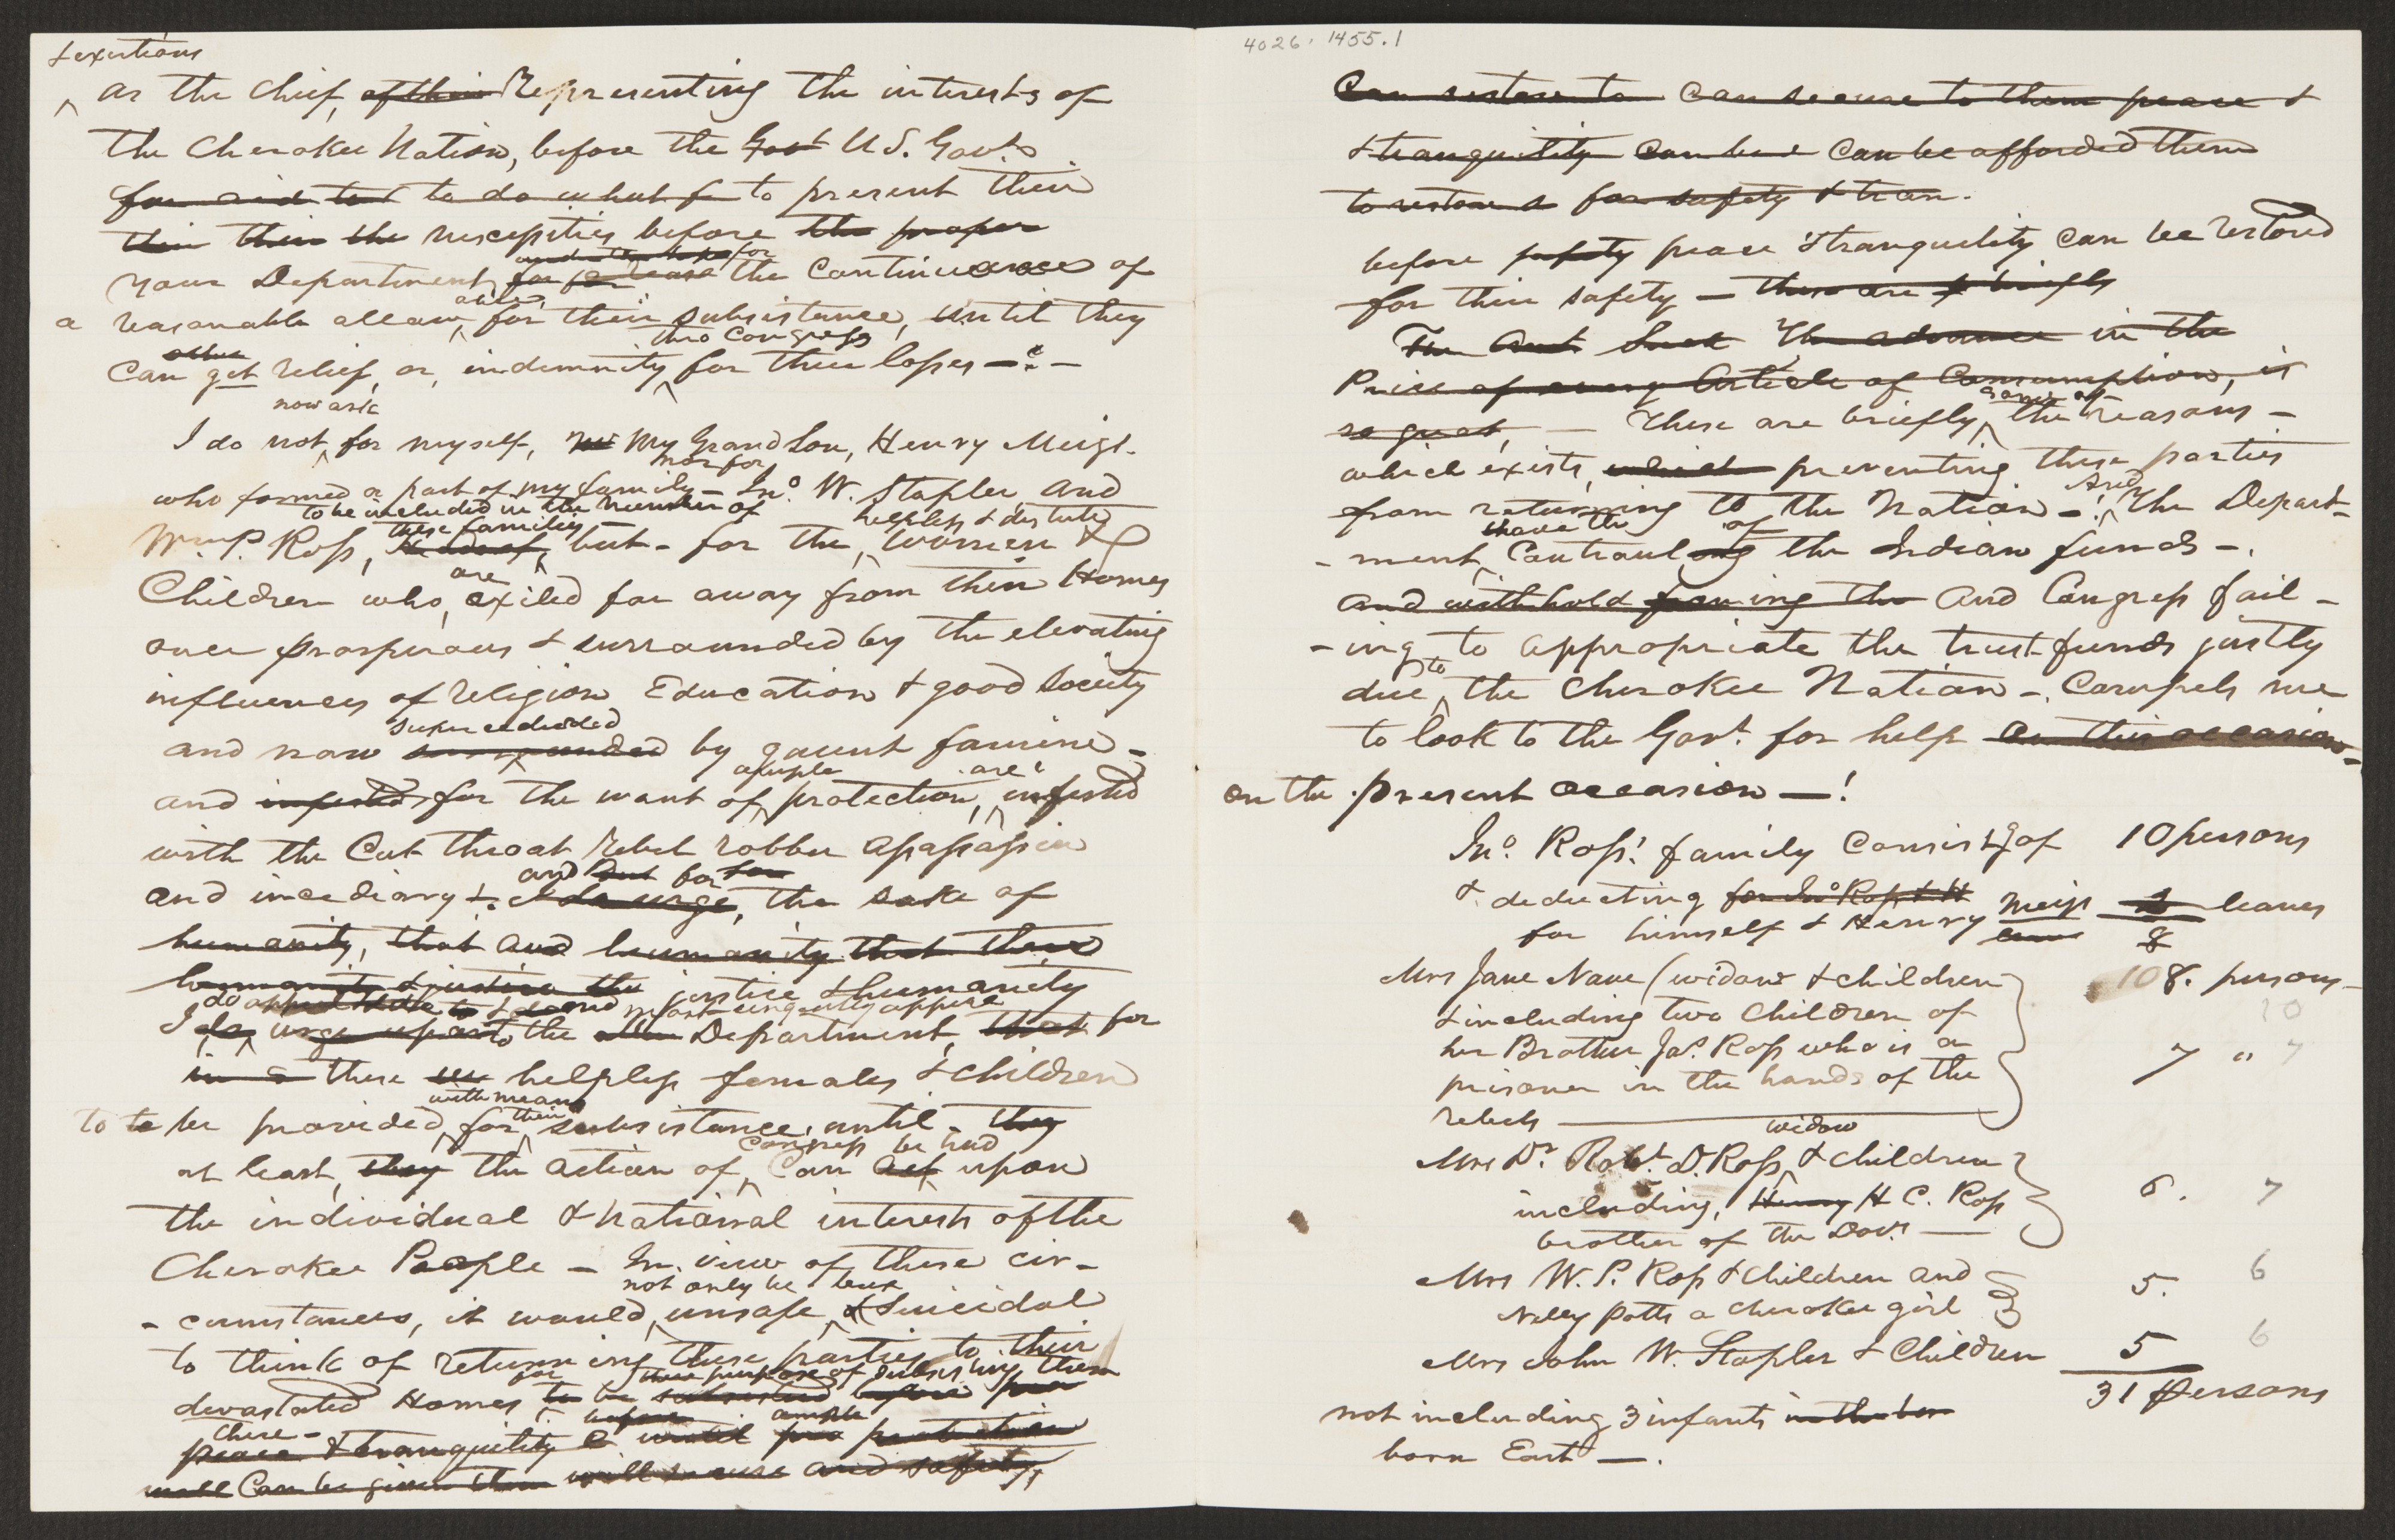 & exertions
as the Chief, of their Representing the interests of
the Cherokee Nation, before the Govt U.S. Govt.
for aid to do what to present their
their their the necessities before the proper
for
Your Department, for the Continuance of
ance
a reasonable allow, for their subsistence, until they
other thro Congress
Can get relief, or, indemnity for their losses —
now ask
I do not for myself, nor My Grand Son, Henry Meigs.
nor for
who formed a part of my family — Jno. W. Stapler and
to be included in the number of
these families helpless & destitute
Wm. P. Ross, but — for the Women &
are
Children who, exiled far away from their Homes
once prosperous & surrounded by the elevating
influences of religion Education & good Society
and now surrounded by gaunt famine —
ample are
and infested for the want of protection, infested
with the Cut throat Rebel robber assassin
and But for
and incediary &. I do urge, the sake of
humanity, that and humanity that these
humanity & justice the justice & humanity
do appeal to & most urgently
I do urge upon to the Department, that for
in these helpless females & children
with means
their
to be provided, for subsistence, until — they
Congress be had
at least, they the action of Can act upon
the individual & national interests of the
Cherokee People — In view of these cir-
not only be but
- cumstances, it would unsafe & Suicidal
to think of returning these parties to their
for the purpose of subsisting them
devastated Homes to be subsisted before
before ample
there —
peace & tranquility until protection
Can be given them will secure and safety,
4026.1455.1
Can restore to Can secure to them peace &
& tranquility Can be Can be afforded them
to restore for safety & tran.
before safety peace & tranquility can be restored
for their safety — these are briefly
The Such The advance in the
Price of every Article of Consumption, is
some of
so great, — These are briefly, the reasons —
which exists, which preventing these parties
And
from returning to the Nation —. The Depart-
have the of
- ment, Controul ing the Indian funds —.
and withhold ing the And Congress fail-
- ing to appropriate the trust funds justly
to
due, the Cherokee Nation —. Compels me
to look to the Govt. for help on this occasion
on the present occasion — !
Jno. Ross' family Consistg of 10 persons
& deducting for Jno Ross & H
for himself & Henry Meigs 2 leaves
8
Mrs Jane Nave (widow & children 108. persons —
& including two Children of 10
her Brother Jas. Ross who is a 7 " 7
prisoner in the hands of the
rebels —
widow
Mrs Dr. Robt. D. Ross, & children
including, Henry H C. Ross 6. 7
brother of the Doct. —
Mrs W. P. Ross & Children and 5. 6
Nelly Potts a Cherokee girl
Mrs John W. Stapler & Children 5 6
31 Persons
not including 3 infants in the
born East —.